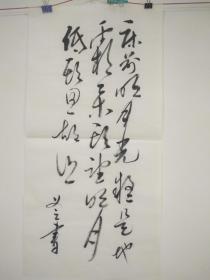 床前明月光疑是地
上霜舉頭望明月
低頭思故鄉
書